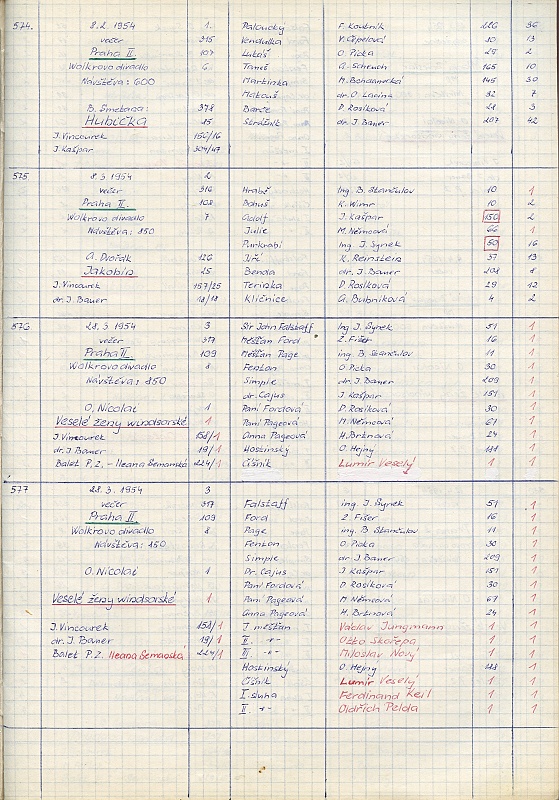 574. 8.2. 1954 1. Paloucký F. Koubník 226 36
večer 315 Vendulka V. Čepelová 30 13
Praha II. 107 Lukáš O. Picka 29 2
Wolkrovo divadlo 6 Tomeš G. Scheuch 165 10
Návštěva: 600 Martinka M. Bohdanecká 145 30
Matouš dr. O. Lacina 32 7
B. Smetana: 378 Barče D. Rosíková 28 3
Hubička 15 Strážník dr. J. Bauer 207 42
J. Vincourek 156/16
J. Kašpar 304/47
575. 8.3. 1954 2
večer 316 Hrabě Ing. B. Stančulov 10 1
Praha II. 108 Bohuš K. Wimr 10 2
Wolkrovo divadlo 7 Adolf J. Kašpar 150 2
Návštěva: 850 Julie M. Němcová 66 1
Purkrabí Ing. J. Synek 50 16
A. Dvořák 126 Jiří K. Reinstein 37 13
Jakobín 25 Benda dr. J. Bauer 208 8
J. Vincourek 157/25 Terinka D. Rosíková 29 12
dr. J. Bauer 18/18 Klíčnice A. Bubníková 4 2
576. 28.3. 1954 3 Sir John Falstaff Ing. J. Synek 51 1
večer 317 Měšťan Ford Z. Fišer 16 1
Praha II. 109 Měšťan Page ing. B. Stančulov 11 1
Wolkrovo divadlo 8 Fenton O. Picka 30 1
Návštěva: 850 Simple dr. J. Bauer 209 1
dr. Cajus J. Kašpar 151 1
O. Nicolai 1 Paní Fordová D. Rosíková 30 1
Veselé ženy windsorské 1 Paní Pageová M. Němcová 67 1
J. Vincourek 158/1 Anna Pageová H. Brtnová 24 1
dr. J. Bauer 19/1 Hostinský O. Hejny 111 1
Balet P.Z. - Ileana Semanská 224/1 Číšník Lumír Veselý 1 1
577 28.3. 1954 3
večer 317 Falstaff ing. J. Synek 51 1
Praha II. 109 Ford Z. Fišer 16 1
Wolkrovo divadlo 8 Page ing. B. Stančulov 11 1
Návštěva: 850 Fenton O. Picka 30 1
Simple dr. J. Bauer 209 1
O. Nicolai 1 Dr. Cajus J. Kašpar 151 1
Paní Fordová D. Rosíková 30 1
Veselé ženy windsorské 1. Paní Pageová M. Němcová 67 1
Anna Pageová H. Brtnová 24 1
J. Vincourek 158/1 I měšťan Václav Jungmann 1 1
dr. J. Bauer 19/1 II -"- Otko Skořepa 1 1
Balet P.Z. Ileana Semanská 224/1 III -"- Miloslav Nový 1 1
Hostinský O. Hejny 111 1
Číšník Lumír Veselý 1 1
I. sluha Ferdinand Keil 1 1
II. -"- Oldřich Pelda 1 1